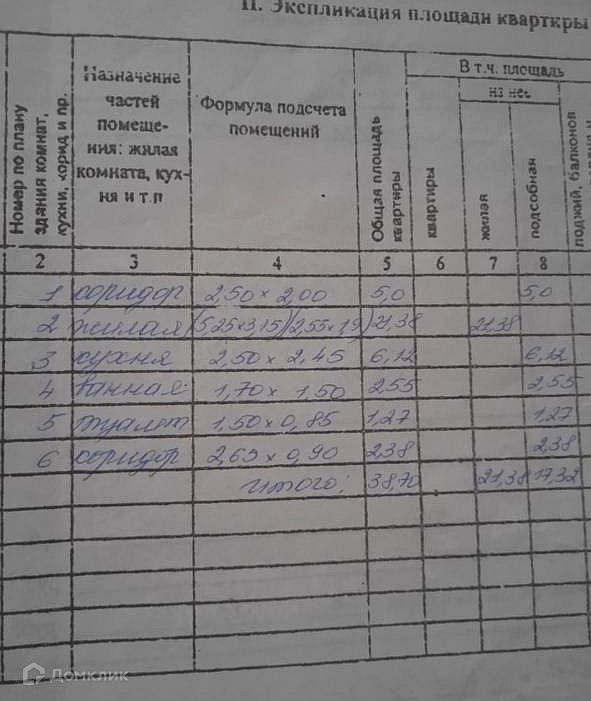 II. Экспликация площади квартиры
Номер по плану здания комнат, кухни, корид и пр.
Назначение частей помеще- ния: жилая комната, кух- ня и т.п
Формула подсчета помещений
Общая площадь квартиры
В т.ч. площадь
квартиры
из нее
жилая
подсобная
лоджий, балконов
2 3 4 5 6 7 8
1 коридор 2,50 × 2,00 5,0 5,0
2 жилая (5,25×3,15)(2,55×1,9) 21,38 21,38
3 кухня 2,50 × 2,45 6,12 6,12
4 ванная 1,70 × 1,50 2,55 2,55
5 туалет 1,50 × 0,85 1,27 1,27
6 коридор 2,65 × 0,90 2,38 2,38
итого: 38,70 21,38 17,32
Домклик